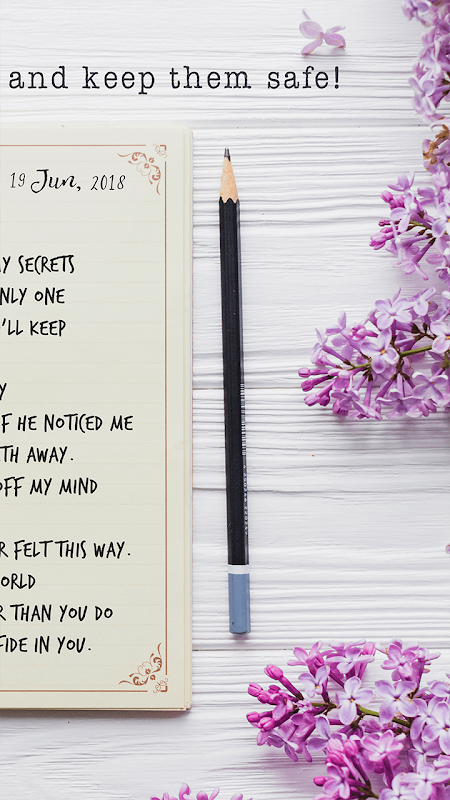 and keep them safe!
19 Jun, 2018
Y SECRETS
NLY ONE
'LL KEEP
Y
F HE NOTICED ME
TH AWAY.
OFF MY MIND
R FELT THIS WAY.
ORLD
R THAN YOU DO
FIDE IN YOU.